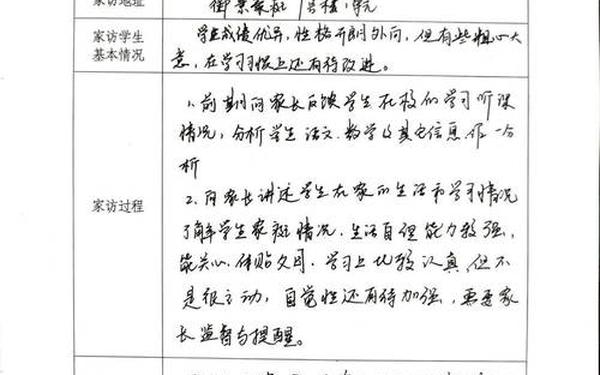 家访地址 御景家庭 1号楼1单元
家访学生
基本情况
学生成绩优异,性格开朗外向,但有些粗心大
意,在学习习惯上还有待改进。
家访过程
1、前期向家长反馈学生在校的学习听课
情况,分析学生语文、数学及其它信息,作一分
析
2、向家长讲述学生在家的生活和学习情况
了解学生家庭情况,生活自理能力较强,
能关心、体贴父母。学习上比较认真,但不
是很主动,自觉性还有待加强,需要家
长监督与提醒。